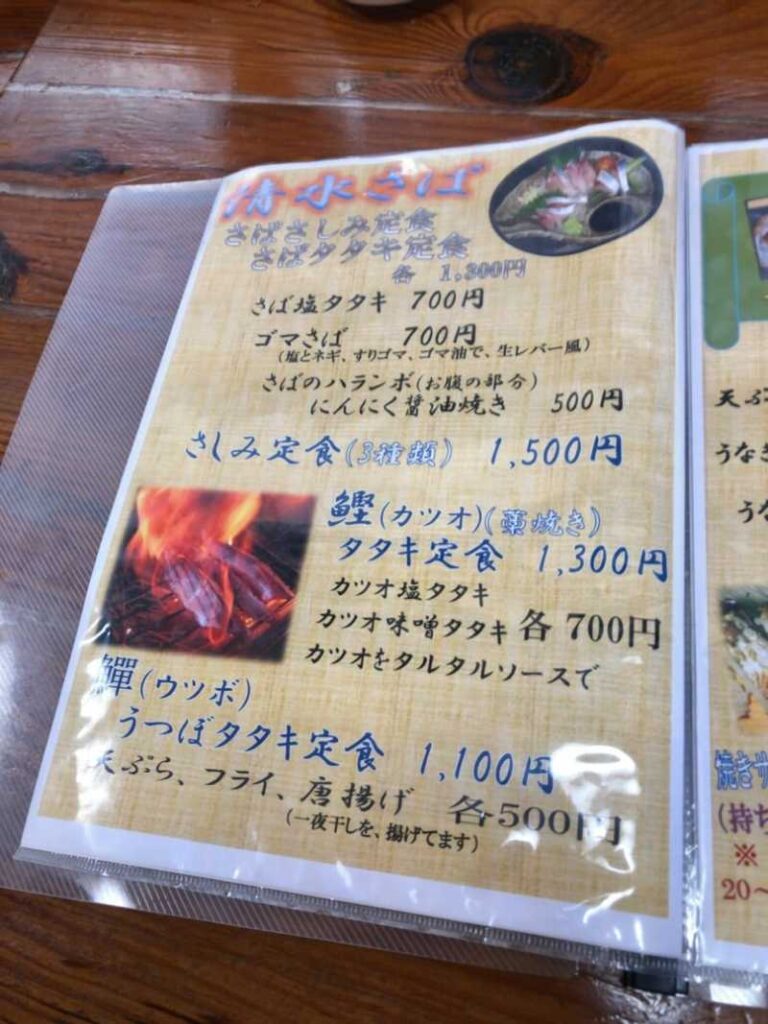 清水さば
さばさしみ定食
さばタタキ定食
各 1,300円
さば塩タタキ 700円
ゴマさば 700円
(塩とネギ、すりゴマ、ゴマ油で、生レバー風)
さばのハランボ(お腹の部分)
にんにく醤油焼き 500円
さしみ定食(3種類) 1,500円
鰹(カツオ)(藁焼き)
タタキ定食 1,300円
カツオ塩タタキ
カツオ味噌タタキ 各 700円
カツオをタルタルソースで
鱓(ウツボ)
うつぼタタキ定食 1,100円
天ぷら、フライ、唐揚げ 各500円
(一夜干しを、揚げてます)
天ぷ
うなぎ
うな
焼きサ
(持ち
※
20~